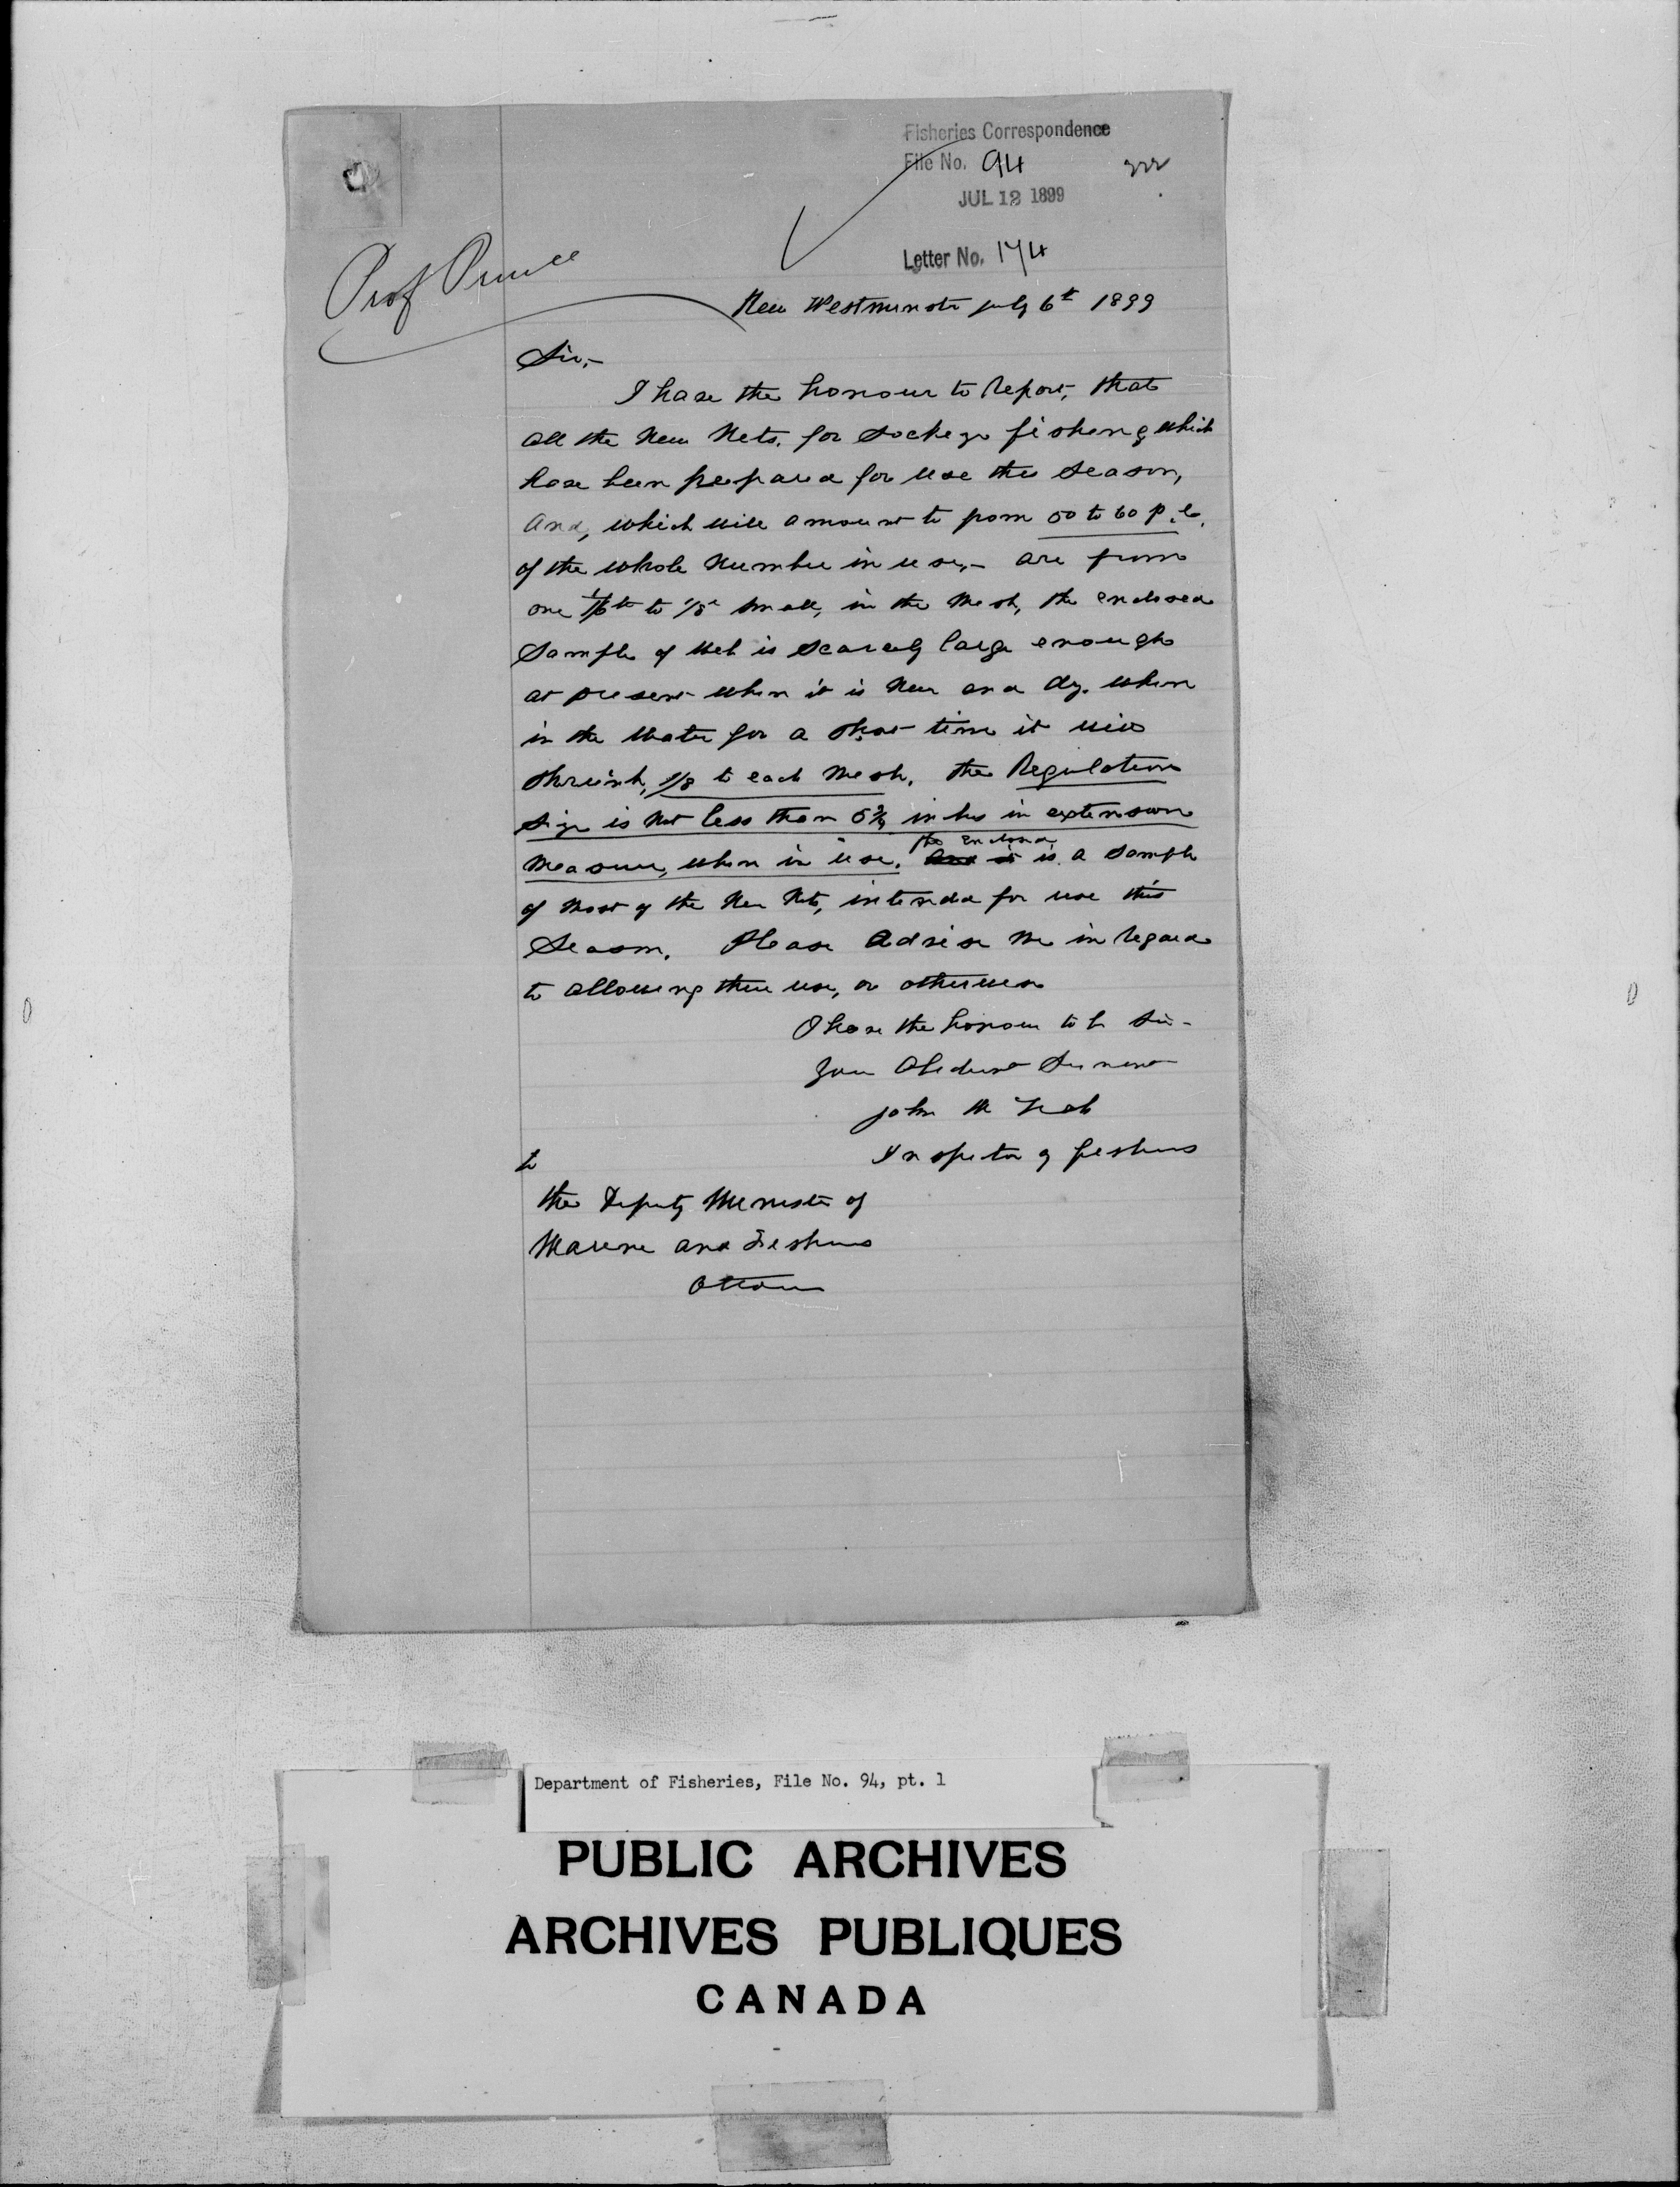 Fisheries Correspondence
File No. 94
JUL 12 1899
Letter No. 174
Prof Prince
New Westminster July 6th 1899
Sir,-
I have the honour to Report, that
all the New Nets, for Sockeye fishing which
have been prepared for use this Season,
And, which will amount to from 50 to 60 p.c.
of the whole Number in use,- are from
one 1/6th to 1/8th small, in the Mesh, the enclosed
Sample of Web is scarcely large enough
at present when it is New and dry. when
in the Water for a short time it will
shrink, 1/8 to each Mesh. the Regulation
Size is Not less than 5 3/4 inches in extension
Measure, when in use. the Enclosed is a Sample
of Most of the New Nets, intended for use this
Season. Please Advise Me in Regard
to allowing their use, or otherwise
I have the honour to be Sir-
Your Obedient Servant
John
Inspector of Fisheries
to
the Deputy Minister of
Marine and Fisheries
Ottawa
Department of Fisheries, File No. 94, pt. 1
PUBLIC ARCHIVES
ARCHIVES PUBLIQUES
CANADA